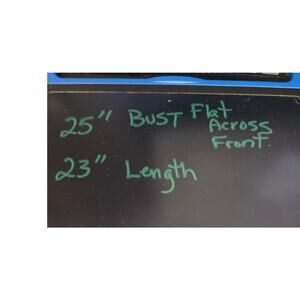 25" BUST Flat
Across
Front
23" Length